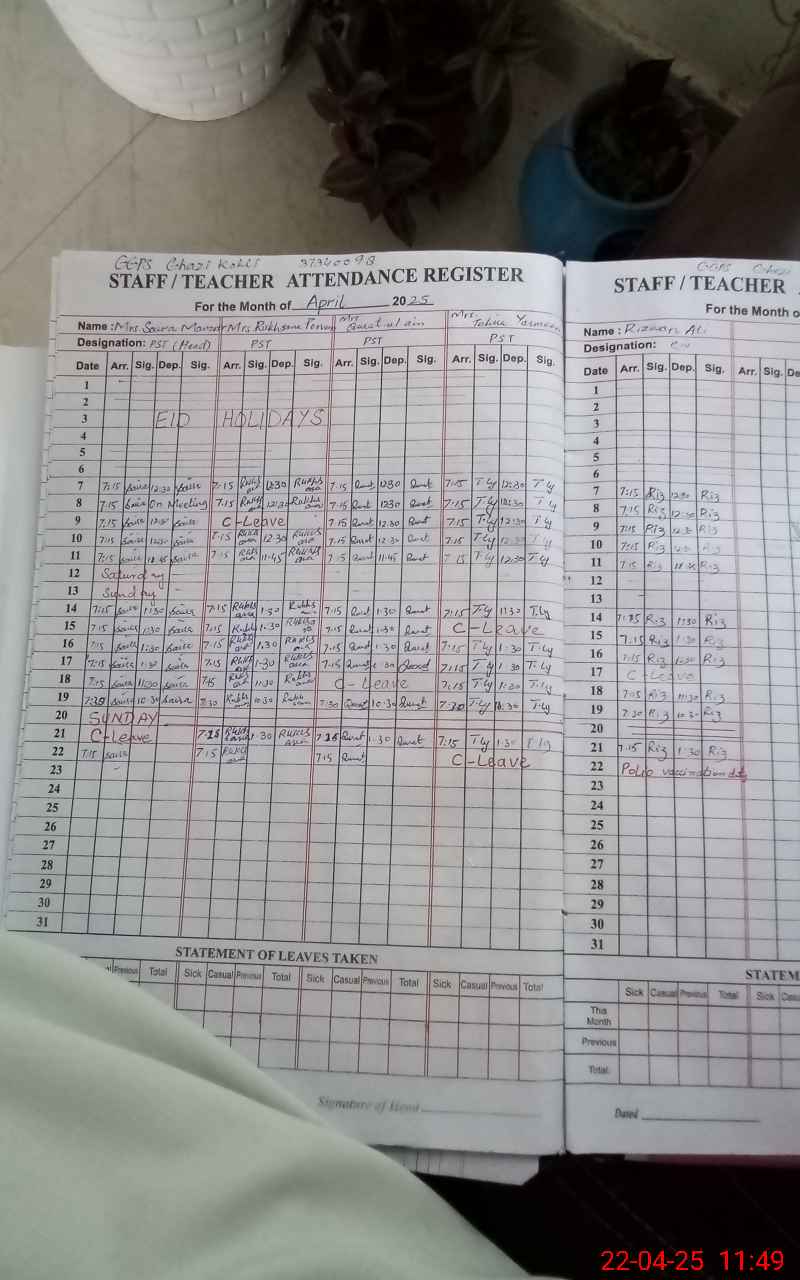 GGPS Ghazi Kohli 37340098
STAFF / TEACHER ATTENDANCE REGISTER
For the Month of April 2025
Name : Mrs Saira Mrs Rukhsana Mrs Qurat ul ain Mrs. Tahira Yasmeen
Designation: PST (Head) PST PST PST
Date Arr. Sig. Dep. Sig. Arr. Sig. Dep. Sig. Arr. Sig. Dep. Sig. Arr. Sig. Dep. Sig.
1
2
3 EID HOLIDAYS
4
5
6
7 7:15 Saira 12:30 Saira 7:15 Rukhs ana 12:30 Rukhs ana 7:15 Qurat 12:30 Qurat 7:15 T-ly 12:30 T-ly
8 7:15 Saira On Meeting 7:15 Rukhs 12:30 Rukhs ana 7:15 Qurat 12:30 Qurat 7:15 T-ly 12:30 T-ly
9 7:15 Saira 12:30 Saira C-Leave 7:15 Qurat 12:30 Qurat 7:15 T-ly 12:30 T-ly
10 7:15 Saira 12:30 Saira 7:15 Rukhs ana 12:30 Rukhs ana 7:15 Qurat 12:30 Qurat 7:15 T-ly 12:30 T-ly
11 7:15 Saira 11:45 Saira 7:15 Rukhs ana 11:45 Rukhs ana 7:15 Qurat 11:45 Qurat 7:15 T-ly 12:30 T-ly
12 Saturday
13 Sunday
14 7:15 Saira 1:30 Saira 7:15 Rukhs ana 1:30 Rukhs ana 7:15 Qurat 1:30 Qurat 7:15 T-ly 1:30 T-ly
15 7:15 Saira 1:30 Saira 7:15 Rukhs 1:30 Rukhsa 7:15 Qurat 1:30 Qurat C-Leave
16 7:15 Saira 1:30 Saira 7:15 Rukhs ana 1:30 Rukhs ana 7:15 Qurat 1:30 Qurat 7:15 T-ly 1:30 T-ly
17 7:15 Saira 1:30 Saira 7:15 Rukhs ana 1:30 Rukhs ana 7:15 Qurat 1:30 Qurat 7:15 T-ly 1:30 T-ly
18 7:15 Saira 11:30 Saira Rukhs ana 11:30 Rukhs ana C-Leave 7:15 T-ly T-ly
19 7:30 Saira 10:30 Saira 7:30 Rukhs ana 10:30 Rukhs ana 7:30 Qurat 10:30 Qurat 7:30 T-ly 10:30 T-ly
20 SUNDAY
21 C-Leave 7:15 Rukhs ana 1:30 Rukhs ana 7:15 Qurat 1:30 Qurat 7:15 T-ly 1:30 T-ly
22 7:15 Saira 7:15 Rukhs ana 7:15 Qurat C-Leave
23
24
25
26
27
28
29
30
31
STATEMENT OF LEAVES TAKEN
Previous Total Sick Casual Previous Total Sick Casual Previous Total Sick Casual Previous Total
Signature of Head
GGPS Ghazi
STAFF / TEACHER
For the Month o
Name : Rizwan Ali
Designation:
Date Arr. Sig. Dep. Sig. Arr. Sig. Dep.
1
2
3
4
5
6
7 7:15 Riz 12:30 Riz
8 7:15 Riz 12:30 Riz
9 7:15 Riz 12:30 Riz
10 7:15 Riz 12:30 Riz
11 7:15 Riz Riz
12
13
14 7:15 Riz 1:30 Riz
15 7:15 Riz 1:30 Riz
16 7:15 Riz 1:30 Riz
17 C-Leave
18 7:15 Riz 11:30 Riz
19 7:30 Riz 10:30 Riz
20
21 7:15 Riz 1:30 Riz
22 Polio vaccination
23
24
25
26
27
28
29
30
31
STATEM
Sick Casual Previous Total Sick
This Month
Previous
Total
Dated
22-04-25 11:49